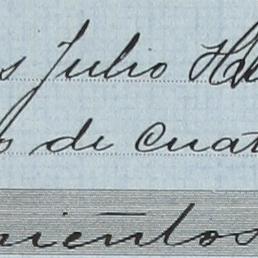 s Julio He
o de cuat
nientos